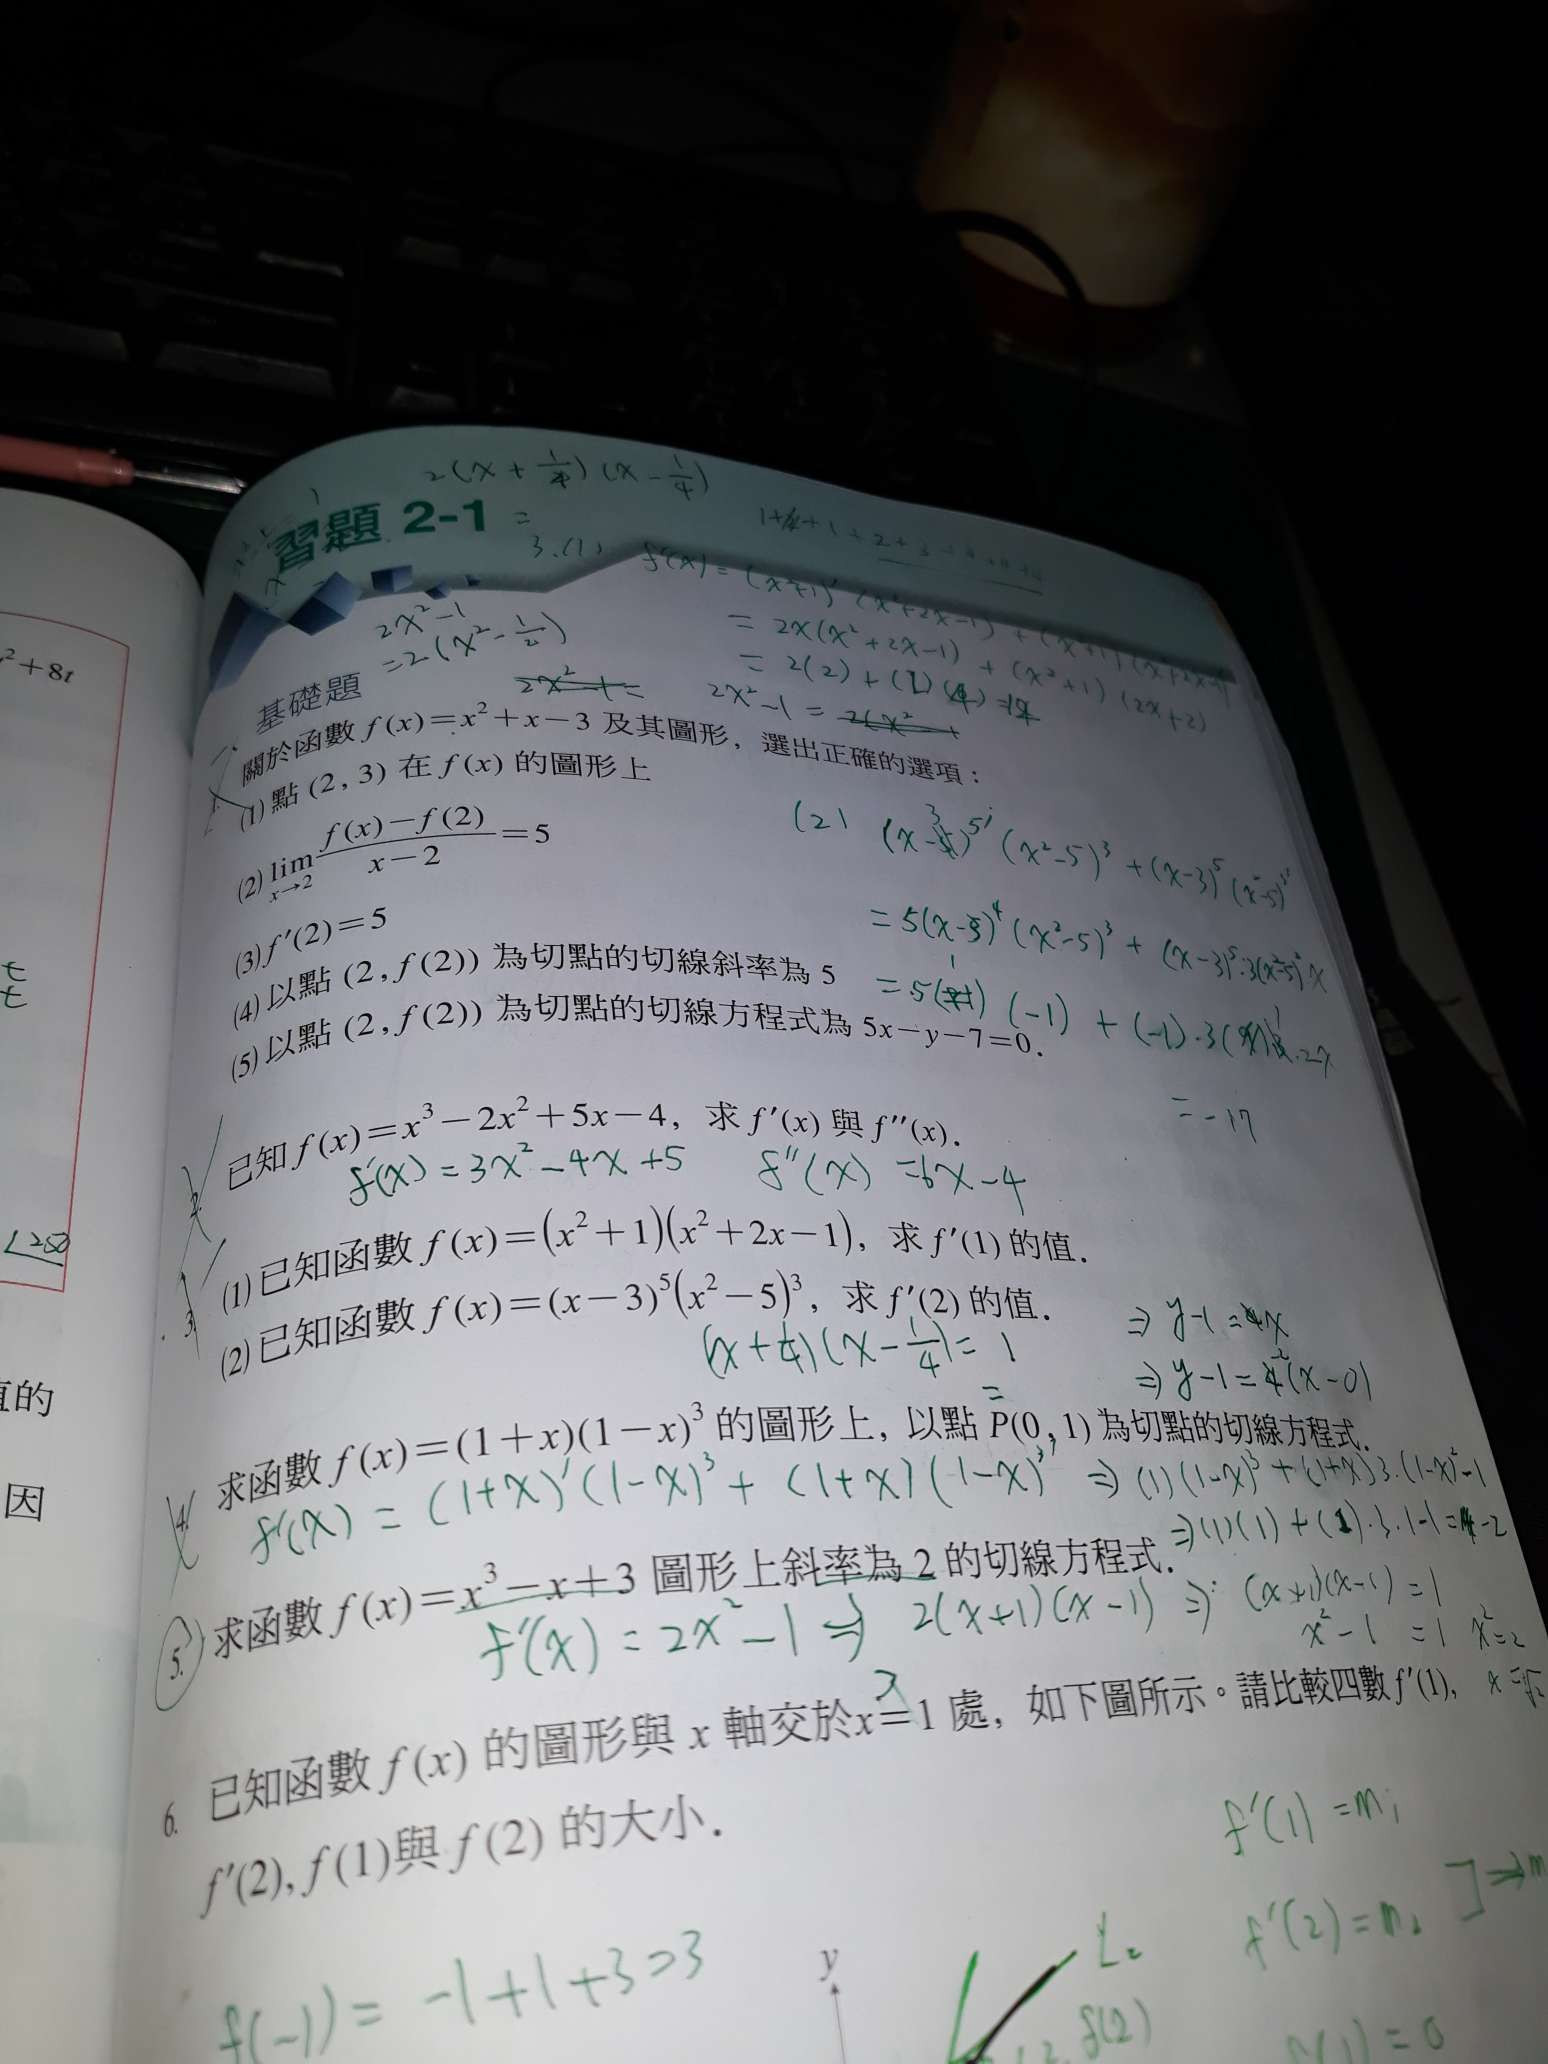 2(x+1/4)(x-1/4)
習題 2-1 =
3.(1) f'(x) = (x²+1)'(x²+2x-1) + (x²+1)(x²+2x-1)'
= 2x(x²+2x-1) + (x²+1)(2x+2)
2x²-1
=2(x²-1/2)
2x²-1 =
基礎題
關於函數 f(x)=x²+x-3 及其圖形，選出正確的選項：
(1)點 (2, 3) 在 f(x) 的圖形上
(2) lim x→2 f(x)-f(2) / x-2 =5
(3) f'(2)=5
(4)以點 (2, f(2)) 為切點的切線斜率為 5
(5)以點 (2, f(2)) 為切點的切線方程式為 5x-y-7=0.
(2) (x-3)⁵'(x²-5)³ + (x-3)⁵(x²-5)³'
= 5(x-3)⁴(x²-5)³ + (x-3)⁵·3(x²-5)²
= 5(1)(-1) + (-1)·3
= -17
2. 已知 f(x)=x³-2x²+5x-4，求 f'(x) 與 f''(x).
f'(x) = 3x²-4x+5 f''(x) =6x-4
3. (1)已知函數 f(x)=(x²+1)(x²+2x-1)，求 f'(1) 的值.
(2)已知函數 f(x)=(x-3)⁵(x²-5)³，求 f'(2) 的值.
(x+1/4)(x-1/4)= 1
=
⇒ y-1 = x
⇒ y-1 = (x-0)
4. 求函數 f(x)=(1+x)(1-x)³ 的圖形上，以點 P(0, 1) 為切點的切線方程式.
f'(x) = (1+x)'(1-x)³ + (1+x)(1-x)³' ⇒ (1)(1-x)³ + (1+x)3·(1-x)²·-1
⇒(1)(1) + (1)·3·1·-1= -2
5. 求函數 f(x)=x³-x+3 圖形上斜率為 2 的切線方程式.
f'(x) = 2x²-1 ⇒ 2(x+1)(x-1) ⇒ (x+1)(x-1) =1
x²-1 =1 x²=2
x=√2
6. 已知函數 f(x) 的圖形與 x 軸交於x=1 處，如下圖所示。請比較四數 f'(1),
f'(2), f(1)與 f(2) 的大小.
f'(1) =m₁
f'(2) = m₂
f(-1) = -1+1+3=3
y
L₂
f(2)
f(1) = 0
²+8t
t
t
250
值的
因